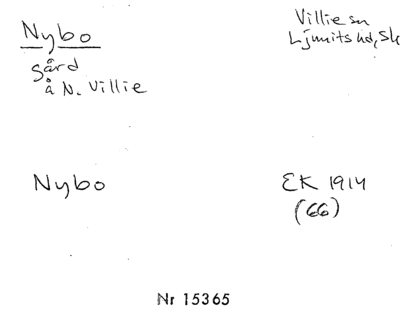 Nybo
Villie sn
Ljunits hd, Sk
gård
å N. Villie
Nybo
EK 1914
(66)
Nr 15365